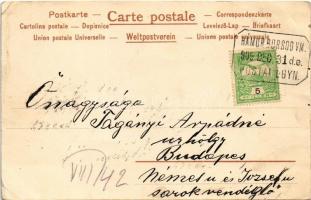 Postkarte - Carte postale - Correspondenzkarte
Cartolina postale - Dopisnice - Levelező-Lap - Briefkaart
Union postale Universelle - Weltpostverein - Unione postale
HÁMOR BORSOD VM.
905 DEC 31 d.e.
POSTAI ÜGYN.
5
Őnagysága
Tagányi Árpádné
úrhölgy
Budapes
Német u és József u
sarok vendéglő
VIII/42